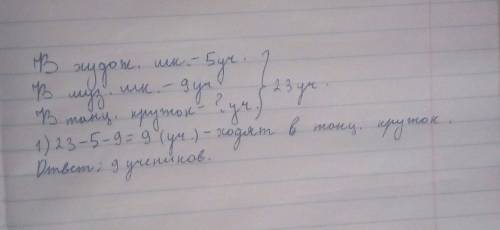 В худож. шк. - 5уч.
В муз. шк. - 9уч.
В танц. кружок - ? уч.
23 уч.
1) 23 - 5 - 9 = 9 (уч.) - ходят в танц. кружок.
Ответ: 9 учеников.